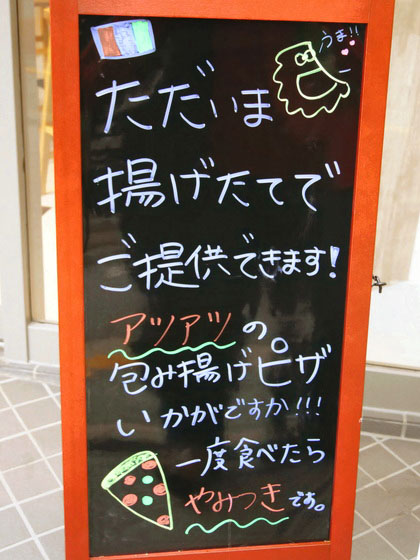 うま!!
ただいま
揚げたてで
ご提供できます!
アツアツの
包み揚げピザ
いかがですか!!!
一度食べたら
やみつきです。